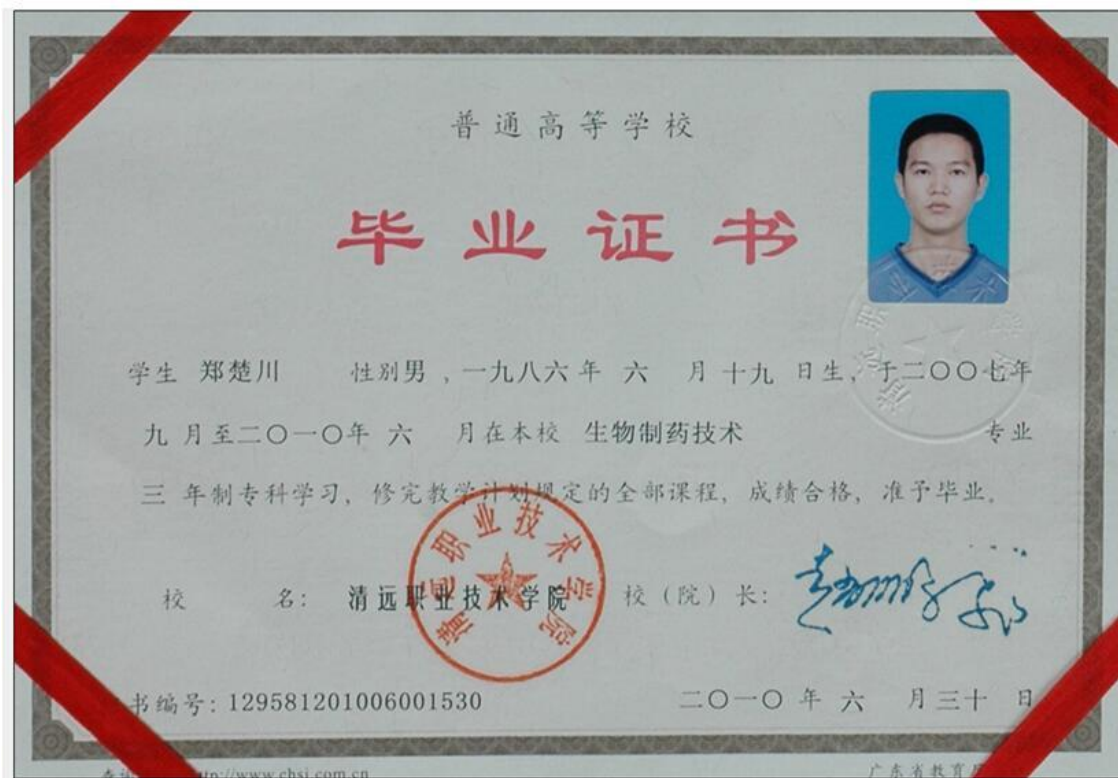 普通高等学校
毕业证书
学生 郑楚川 性别男，一九八六年 六 月十九 日生，于二〇〇七年
九 月至二〇一〇年 六 月在本校 生物制药技术 专业
三 年制专科学习，修完教学计划规定的全部课程，成绩合格，准予毕业。
清远职业技术学院
校 名： 清远职业技术学院 校（院）长：
书编号：129581201006001530 二〇一〇 年 六 月三十 日
http://www.chsi.com.cn 广东省教育